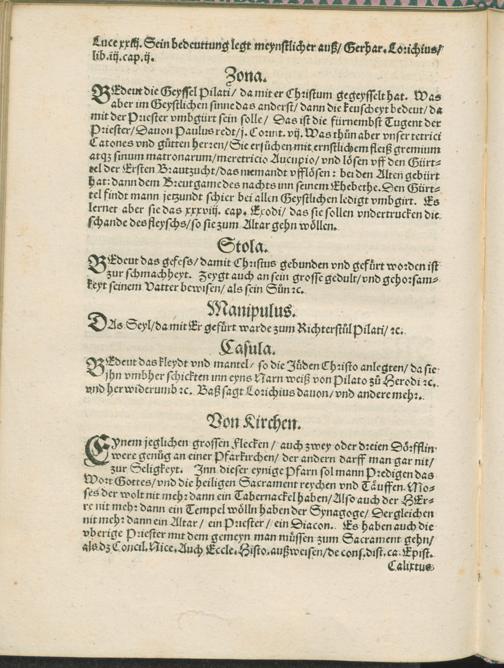 Luce xxiij. Sein bedeuttung legt meynstlicher auß/ Gerhar. Lorichius/
lib.iij.cap.ij.
Zona.
BEdeut die Geyssel Pilati/ da mit er Christum gegeysselt hat. Was
aber im Geystlichen sinne das anderst/ dann die keuscheyt bedeut/ da
mit der Priester vmbgürt sein solle/ Das ist die fürnembst Tugent der
Priester/ Dauon Paulus redt/ j. Corint. vij. Was thün aber vnser tetrici
Catones vnd gütten herren/ Sie ersüchen mit ernstlichem fleiß gremium
atqz sinum matronarum/ meretricio Aucupio/ vnd lösen vff den Gürt-
tel der Ersten Brautzucht/ das niemandt vfflösen: bei den Alten gebürt
hat: dann dem Breutgam des nachts inn seinem Ehebethe. Den Gürt-
tel findt mann jetzundt schier bei allen Geystlichen ledigt vmbgirt. Es
lernet aber sie das xxxviij. cap. Exodi/ das sie sollen vndertrucken die
schande des fleyschs/ so sie zum Altar gehn wöllen.
Stola.
BEdeut das gesess/ damit Christus gebunden vnd gefürt worden ist
zur schmachheyt. Zeygt auch an sein grosse gedult/ vnd gehorsam-
keyt seinem Vatter bewisen/ als sein Sün ꝛc.
Manipulus.
DAs Seyl/ da mit Er gefürt warde zum Richterstül Pilati/ ꝛc.
Casula.
BEdeut das kleydt vnd mantel/ so die Jüden Christo anlegten/ da sie
jhn vmbher schickten inn eyns Narn weiß von Pilato zü Herodi ꝛc.
vnd herwiderumb ꝛc. Baß sagt Lorichius dauon/ vnd andere mehr.
Von Kirchen.
EYnem jeglichen grossen Flecken/ auch zwey oder dreien Dörfflin
were genüg an einer Pfarkirchen/ der andern darff man gar nit/
zur Seligkeyt. Jnn dieser eynige Pfarn sol mann Predigen das
Wort Gottes/ vnd die heiligen Sacrament reychen vnd Täuffen. Mo-
ses der wolt nit mehr dann ein Tabernackel haben/ Also auch der HEr-
re nit mehr dann ein Tempel wölln haben der Synagoge/ Dergleichen
nit mehr dann ein Altar/ ein Priester/ ein Diacon. Es haben auch die
vberige Priester mit dem gemeyn man müssen zum Sacrament gehn/
als dz Concil. Nice. Auch Eccle. Histo. außweisen/ de cons. dist. ca. Epist.
Calixtus